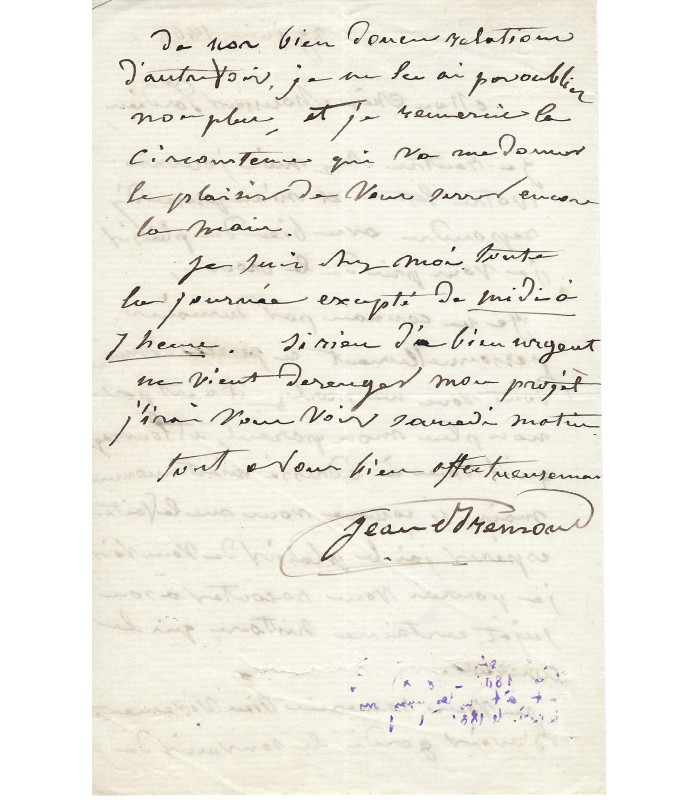 de nos bien douces relations
d'autrefois, je ne les ai pas oublier
non plus, et je remercie la
circonstance qui va me donner
le plaisir de vous serrer encore
la main.
Je suis chez moi toute
la journée excepté de midi à
7 heures. Si rien d'bien urgent
ne vient deranger mon projet
j'irai vous voir samedi matin
tout a vous bien affectueusement
Jean